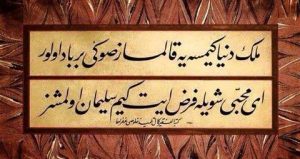 ملك دنیا كیمسه‌یه قالماز صوكی برباد اولور
ای محبی شویله فرض ایت كیم سلیمان اولمشسز